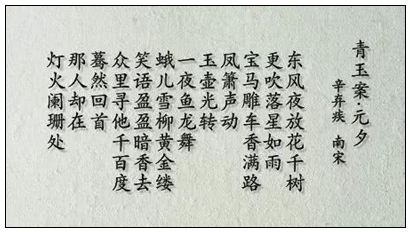 青玉案·元夕
辛弃疾 南宋
东风夜放花千树
更吹落星如雨
宝马雕车香满路
凤箫声动
玉壶光转
一夜鱼龙舞
蛾儿雪柳黄金缕
笑语盈盈暗香去
众里寻他千百度
蓦然回首
那人却在
灯火阑珊处